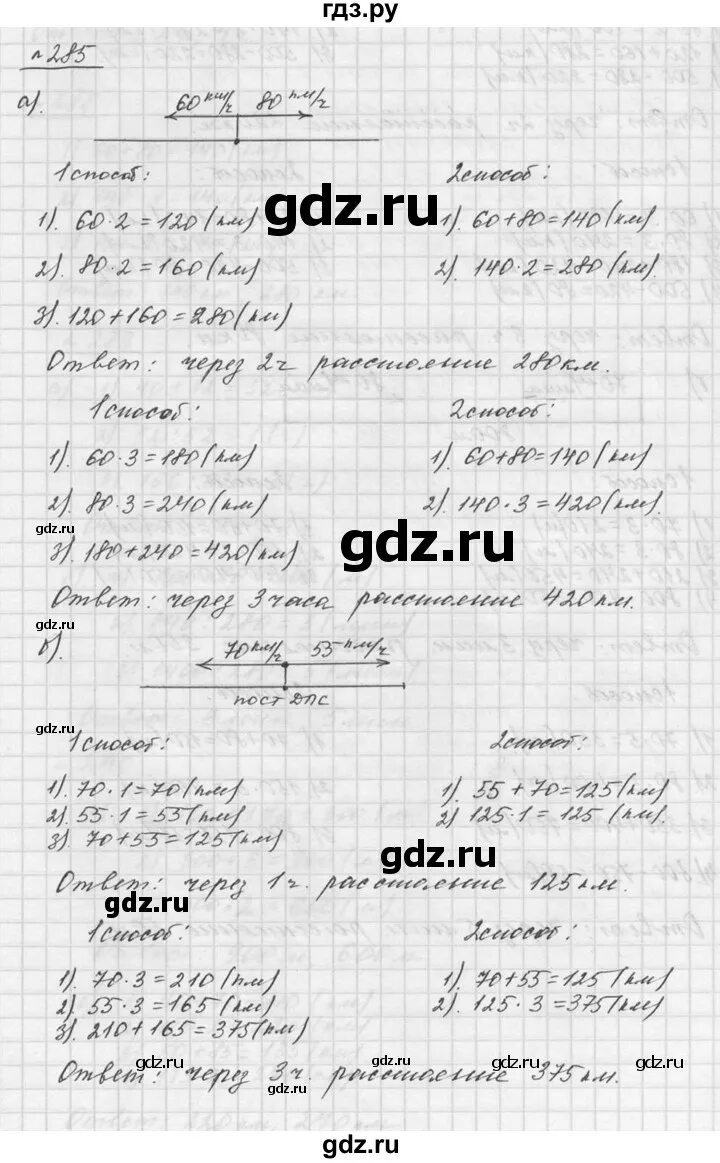 гдз.ру
№285
а).
60 км/ч 80 км/ч
1 способ: 2 способ:
1). 60·2=120(км) 1). 60+80=140(км).
2). 80·2=160(км) 2). 140·2=280(км).
3). 120+160=280(км)
Ответ: через 2ч расстояние 280км.
1 способ: 2 способ:
1). 60·3=180(км) 1). 60+80=140(км)
2). 80·3=240(км) 2). 140·3=420(км).
3). 180+240=420(км)
Ответ: через 3 часа расстояние 420км.
б).
70 км/ч 55 км/ч
пост ДПС
1 способ: 2 способ:
1). 70·1=70(км) 1). 55+70=125(км)
2). 55·1=55(км) 2) 125·1=125 (км).
3). 70+55=125(км)
Ответ: через 1ч. расстояние 125км.
1 способ: 2 способ:
1). 70·3=210(км) 1). 70+55=125(км)
2). 55·3=165(км) 2). 125·3=375(км).
3). 210+165=375(км)
Ответ: через 3ч. расстояние 375км.
gdz.ru
gdz.ru
gdz.ru
gdz.ru
gdz.ru
gdz.ru
gdz.ru
gdz.ru
gdz.ru
gdz.ru
gdz.ru
gdz.ru
gdz.ru
gdz.ru